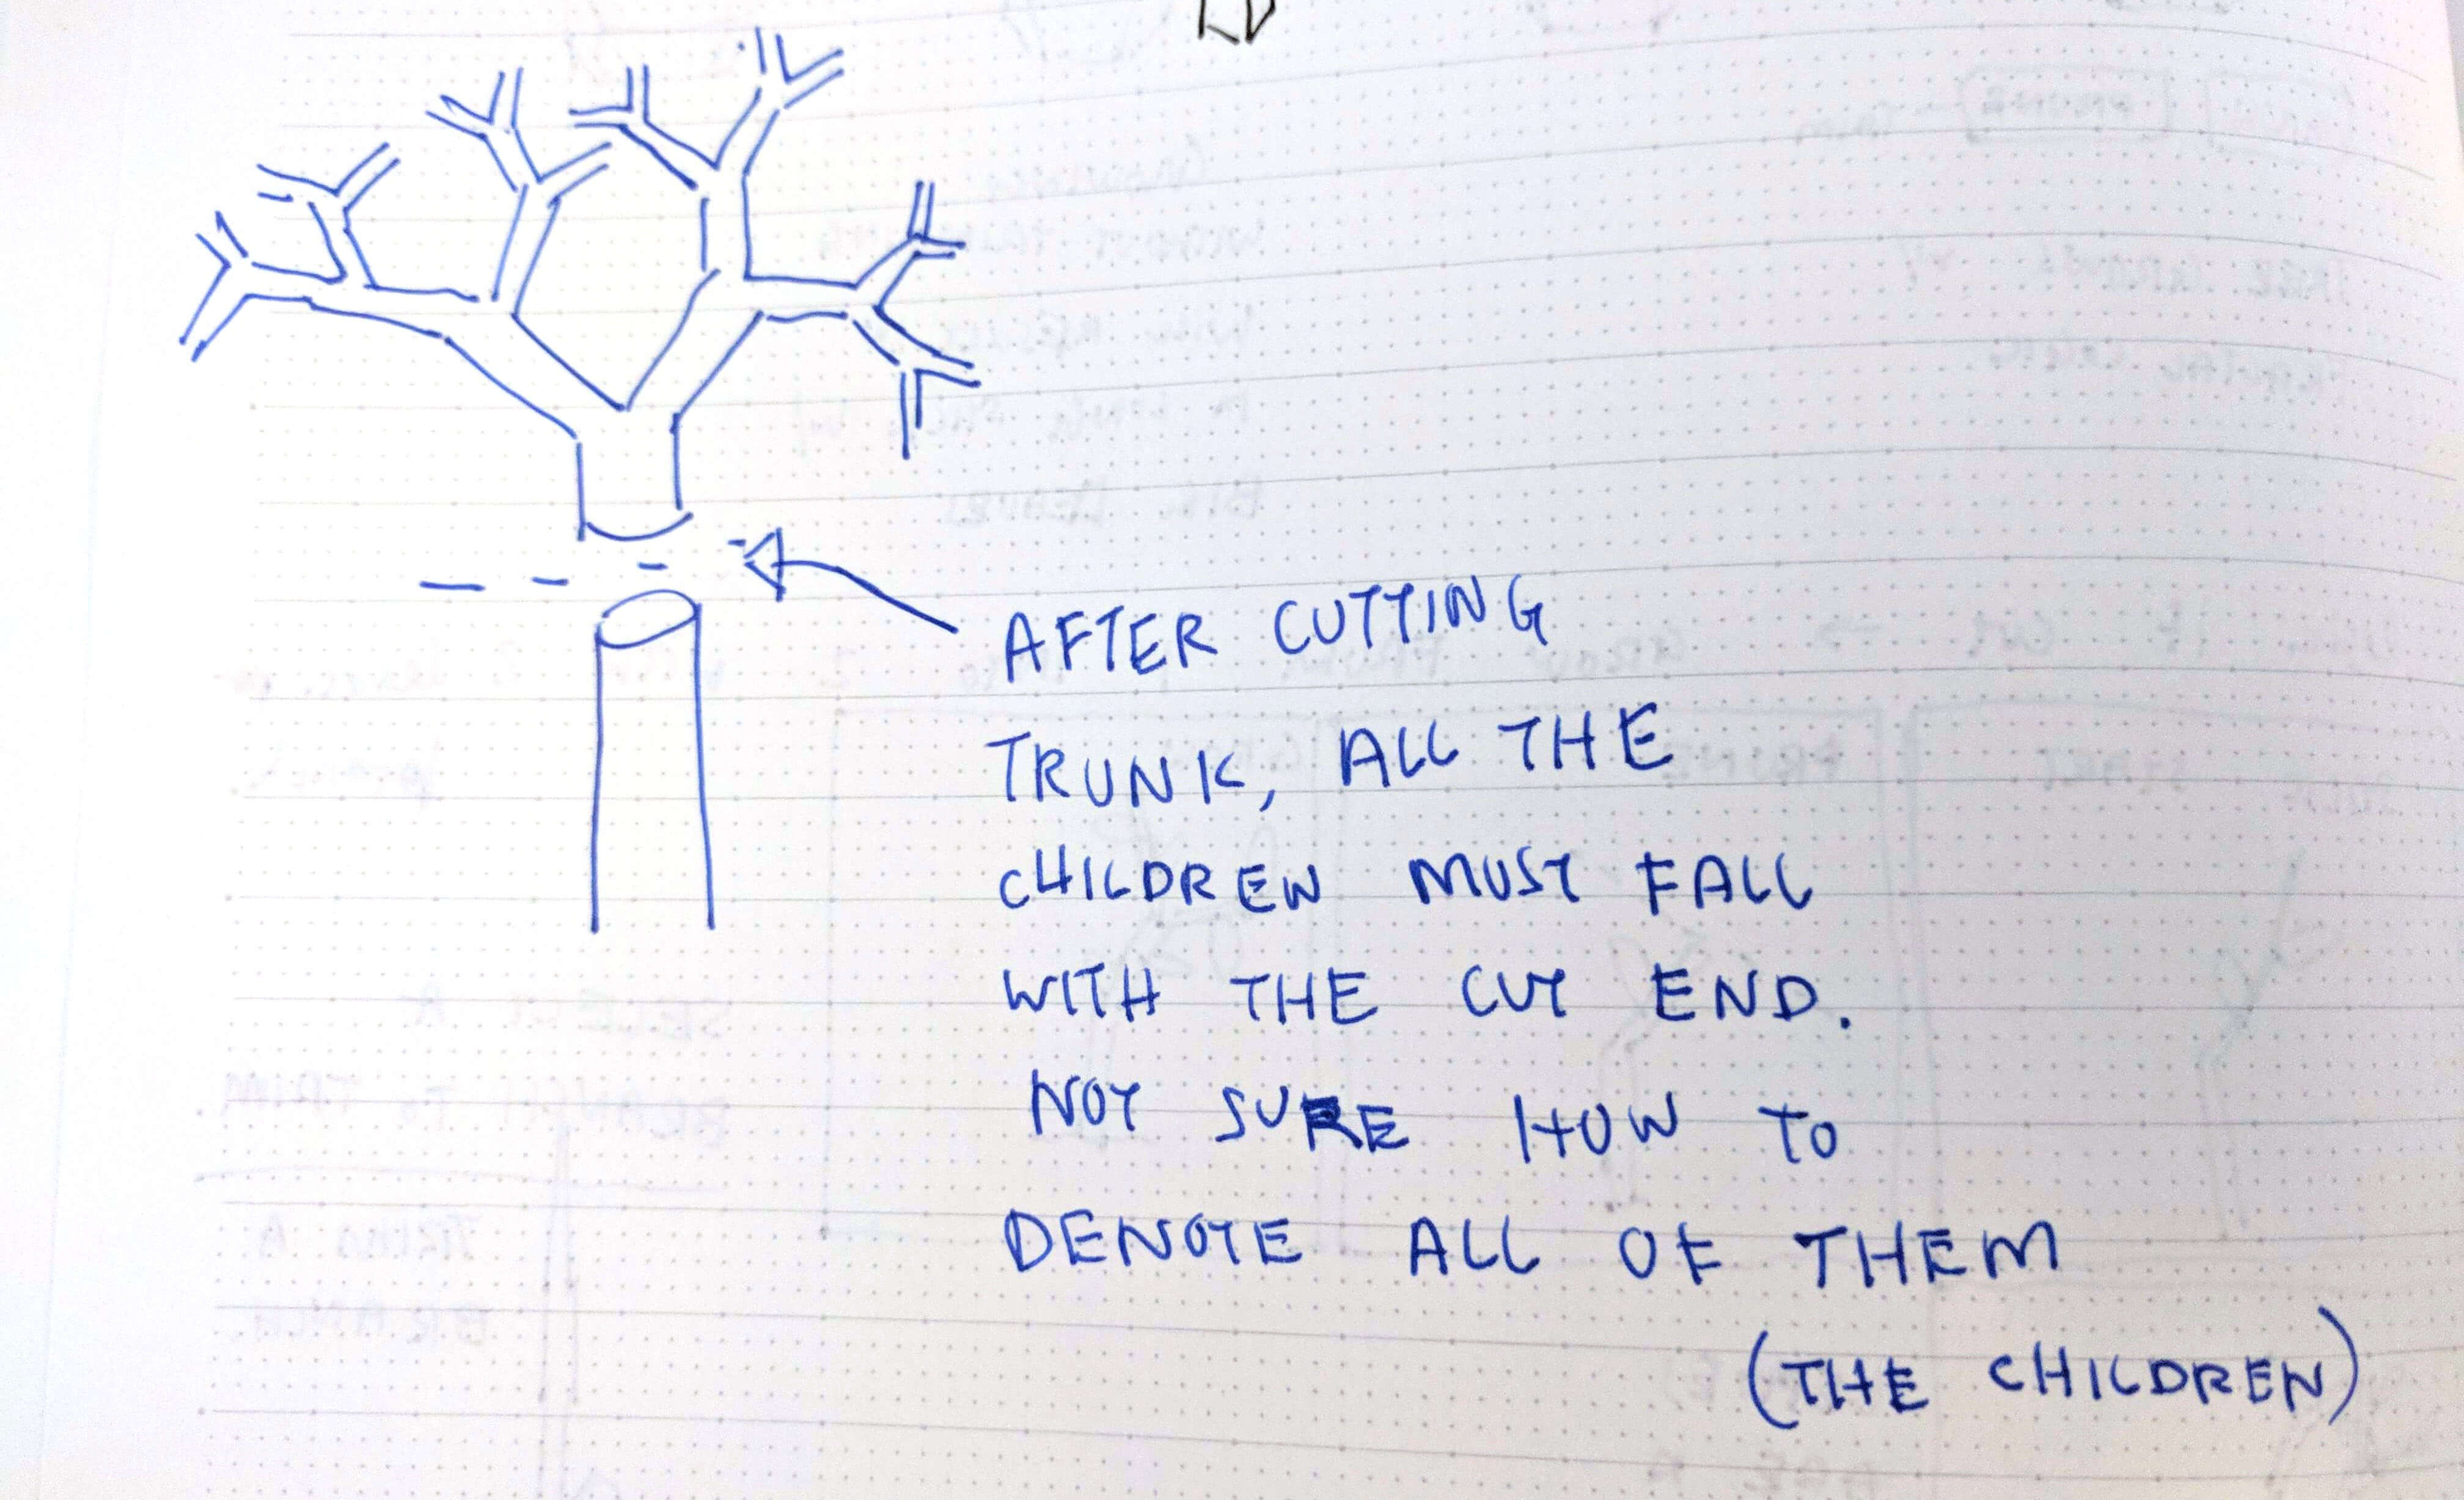 AFTER CUTTING
TRUNK, ALL THE
CHILDREN MUST FALL
WITH THE CUT END.
NOT SURE HOW TO
DENOTE ALL OF THEM
(THE CHILDREN)